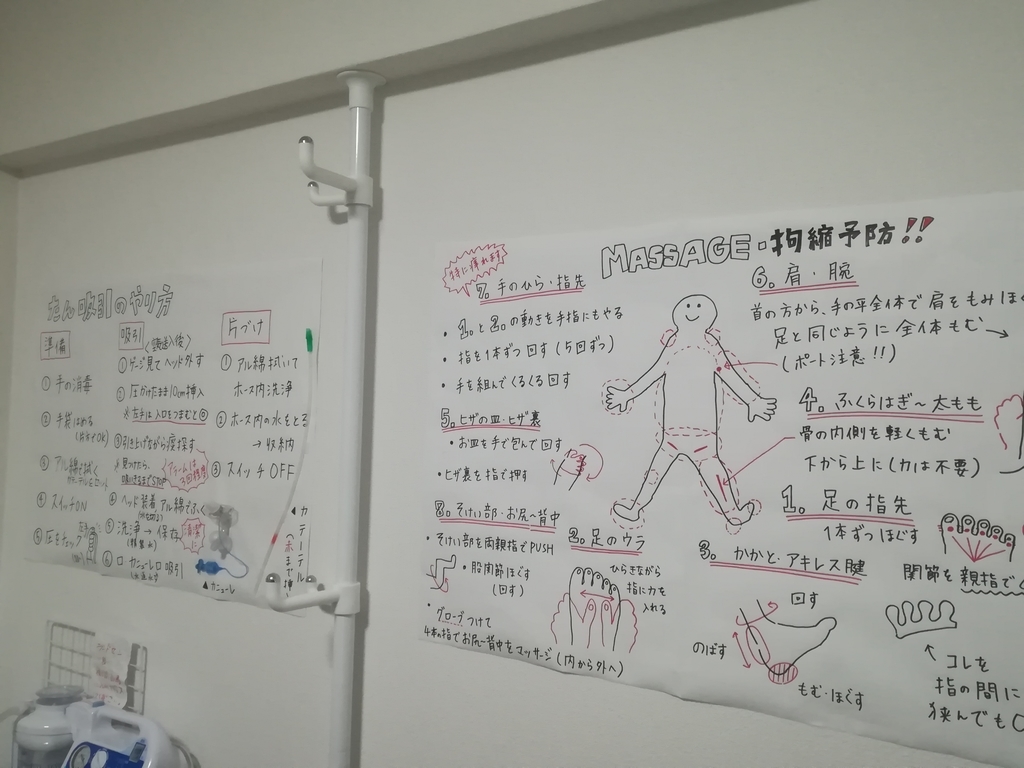 たん吸引のやり方
準備
① 手の消毒
② 手袋はめる
(片方でOK)
③ アル綿で拭く
④ スイッチON
⑤ 圧をチェック
吸引
① ゲージ見てヘッド外す
② 圧かけたまま10cm挿入
※左手に入口をつまむと◎
③ 引き上げながら痰探す
④ ヘッド装着 アル綿でふく
⑤ 洗浄 → 保存
⑥ 口 カニューレ口 吸引
片づけ
① アル綿拭いて
ホース内洗浄
② ホース内の水をとる
→ 収納
③ スイッチOFF
▲カテーテル
▲カニューレ
MASSAGE・拘縮予防!!
特に痺れます
7. 手のひら・指先
・1.と2.の動きを手指にもやる
・指を1本ずつ回す(5回ずつ)
・手を組んでくるくる回す
5. ヒザの皿・ヒザ裏
・お皿を手で包んで回す
・ヒザ裏を指で押す
8. そけい部・お尻〜背中
・そけい部を両親指でPUSH
・股関節ほぐす
(回す)
・グローブつけて
4本の指でお尻〜背中をマッサージ(内から外へ)
2. 足のウラ
ひらきながら
指に力を
入れる
6. 肩・腕
首の方から、手の平全体で肩をもみほ
足と同じように全体もむ→
(ポート注意!!)
4. ふくらはぎ〜太もも
骨の内側を軽くもむ
下から上に(力は不要)
1. 足の指先
1本ずつほぐす
関節を親指で
3. かかと・アキレス腱
回す
のばす
もむ・ほぐす
コレを
指の間に
挟んでもO